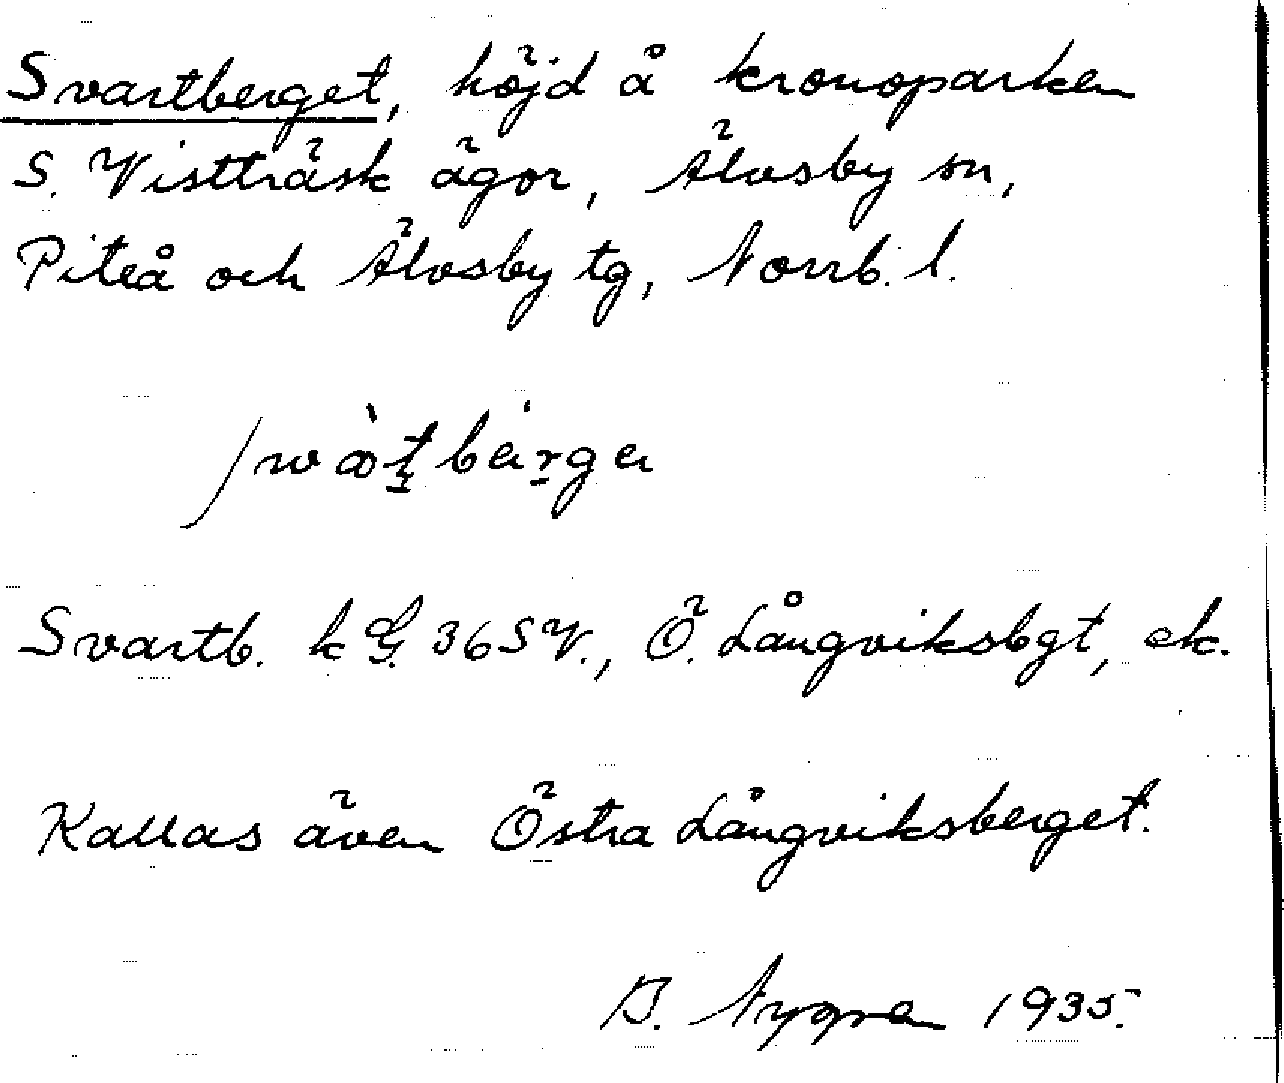 Svartberget, höjd å kronoparken
S. Vistträsk ägor, Älvsby sn,
Piteå och Älvsby tg, Norrb. l.
Svartb. k G. 36 SV., Ö. Långviksbgt, ek.
Kallas även Östra Långviksberget.
B. Nygren 1935.